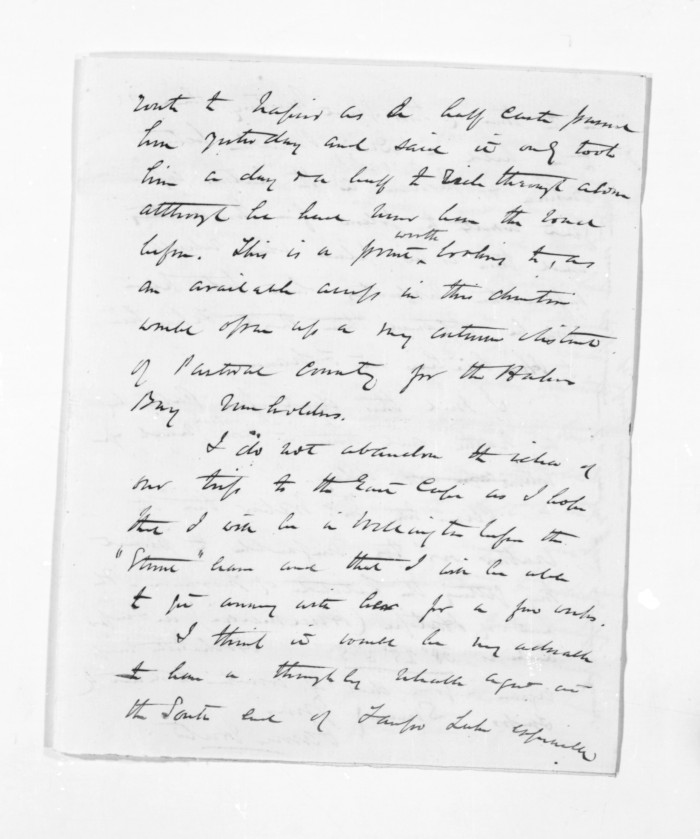 route to Napier as a half caste passed
him yesterday and said it only took
him a day & a half to ride through alone
although he had never been the road
before. This is a point worth looking to, as
an available access in this direction
would open up a very extensive district
of Pastoral Country for the Hawkes
Bay runholders.
I do not abandon the idea of
our trip to the East Cape as I hope
that I will be in Wellington before the
"Sturt" leaves and that I will be able
to get away with her for a few weeks.
I think it would be very advisable
to have a thoroughly reliable agent at
the South end of Taupo Lake especially